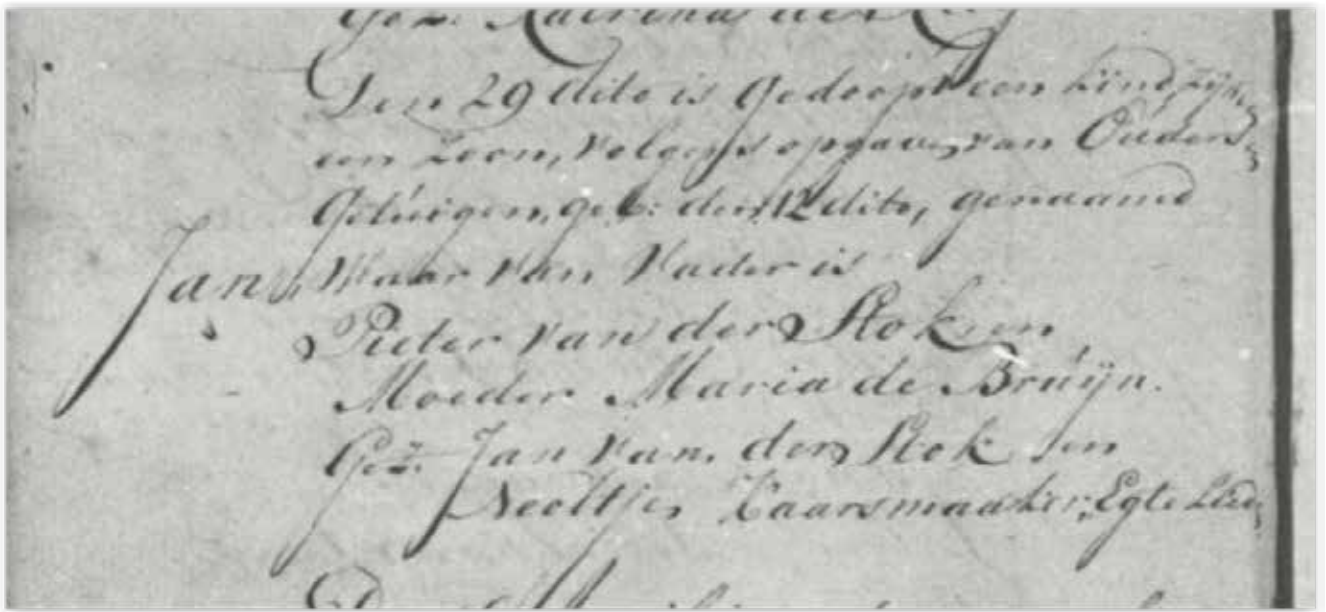 Gez. Katrina der
Den 29 dito is Gedoopt een kind, zijn
een Zoon, volgens opgave van Ouders
Getuigen, geb: den 12 dito, genaamd
Jan, Waar van Vader is
Pieter van der Stok en
Moeder Maria de Bruijn.
Gez. Jan van der Stok en
Neeltje Kaarsmaaker, Egte Lied